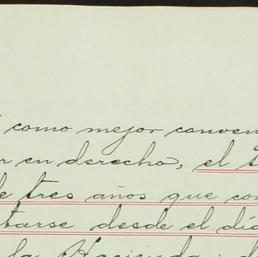 como mejor conven
r en derecho, el
de tres años que con
tarse desde el día
la Hacienda, d